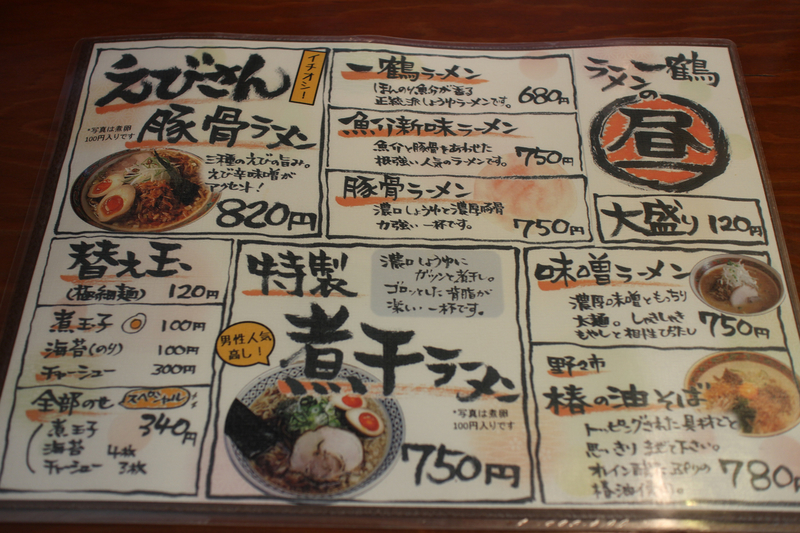 えびさん
イチオシ!
豚骨ラーメン
*写真は煮卵
100円入りです
三種のえびの旨み。
えび辛味噌が
アクセント!
820円
一鶴ラーメン
ほんのり魚介が香る
正統派しょうゆラーメンです。
680円
魚介新味ラーメン
魚介と豚骨をあわせた
根強い人気のラーメンです。
750円
豚骨ラーメン
濃口しょうゆと濃厚豚骨
力強い一杯です。
750円
ラーメン一鶴
の
昼
大盛り 120円
替え玉
(極細麺) 120円
煮玉子 100円
海苔(のり) 100円
チャーシュー 300円
全部のせ スペシャル
340円
煮玉子
海苔 4枚
チャーシュー 3枚
特製
濃口しょうゆに
ガツンと煮干し。
ゴロッとした背脂が
楽しい一杯です。
男性人気
高し!
煮干ラーメン
*写真は煮卵
100円入りです
750円
味噌ラーメン
濃厚味噌ともっちり
太麺。しゃきしゃき
もやしと相性ぴったし
750円
野々市
椿の油そば
トッピングされた具材でと
思いっきりまぜて下さい。
オレイン酸たっぷりの
椿油使用。
780円